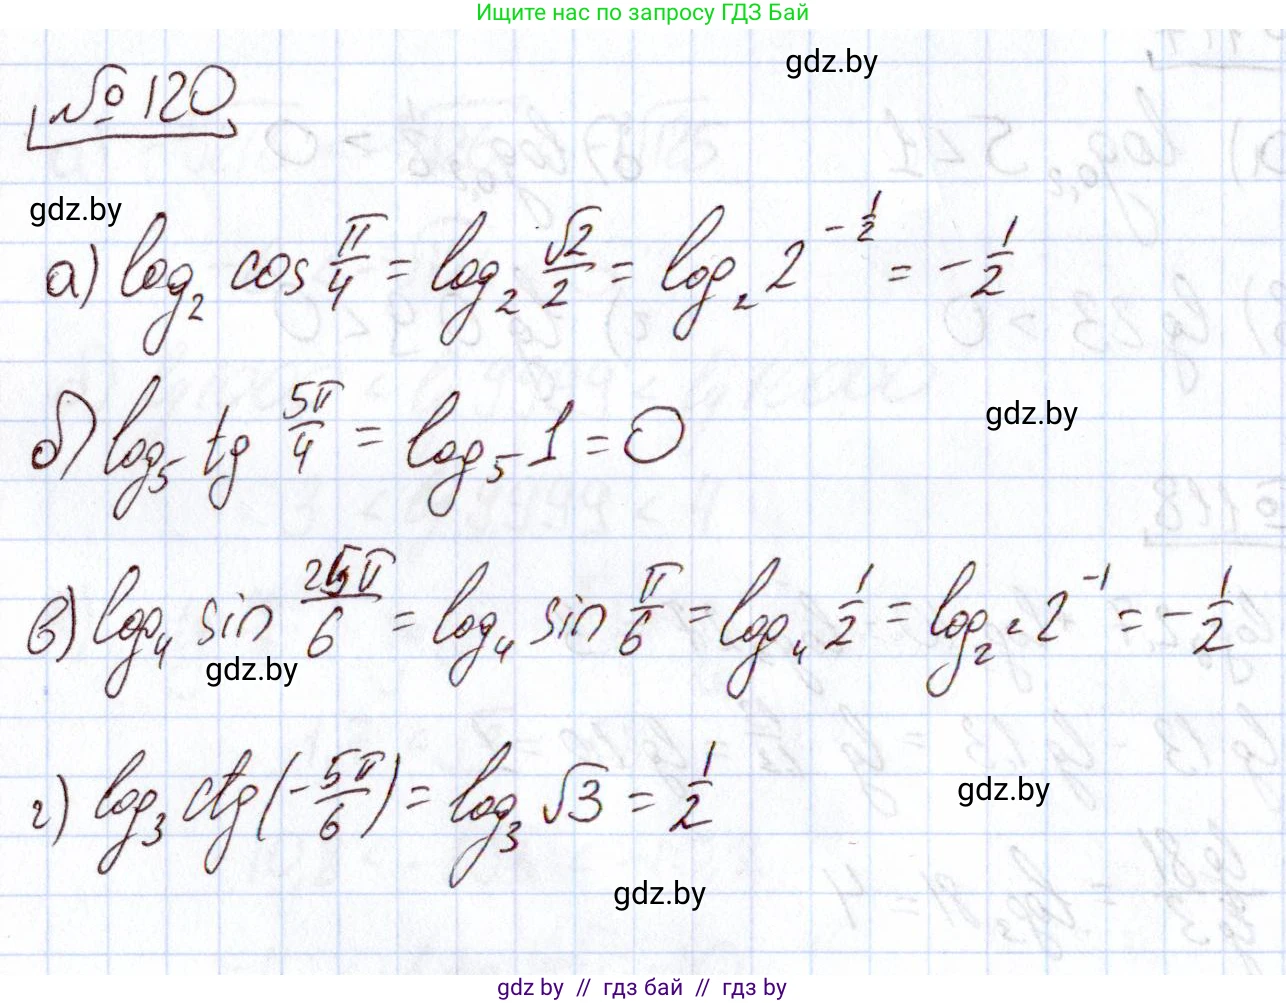 Ищите нас по запросу ГДЗ Бай
gdz.by
№ 120
gdz.by
а) log₂ cos π/4 = log₂ √2/2 = log₂ 2^(-1/2) = -1/2
gdz.by
б) log₅ tg 5π/4 = log₅ 1 = 0
в) log₄ sin 25π/6 = log₄ sin π/6 = log₄ 1/2 = log₂² 2⁻¹ = -1/2
gdz.by
г) log₃ ctg(-5π/6) = log₃ √3 = 1/2
gdz.by
gdz.by
gdz by // гдз бай // гдз by